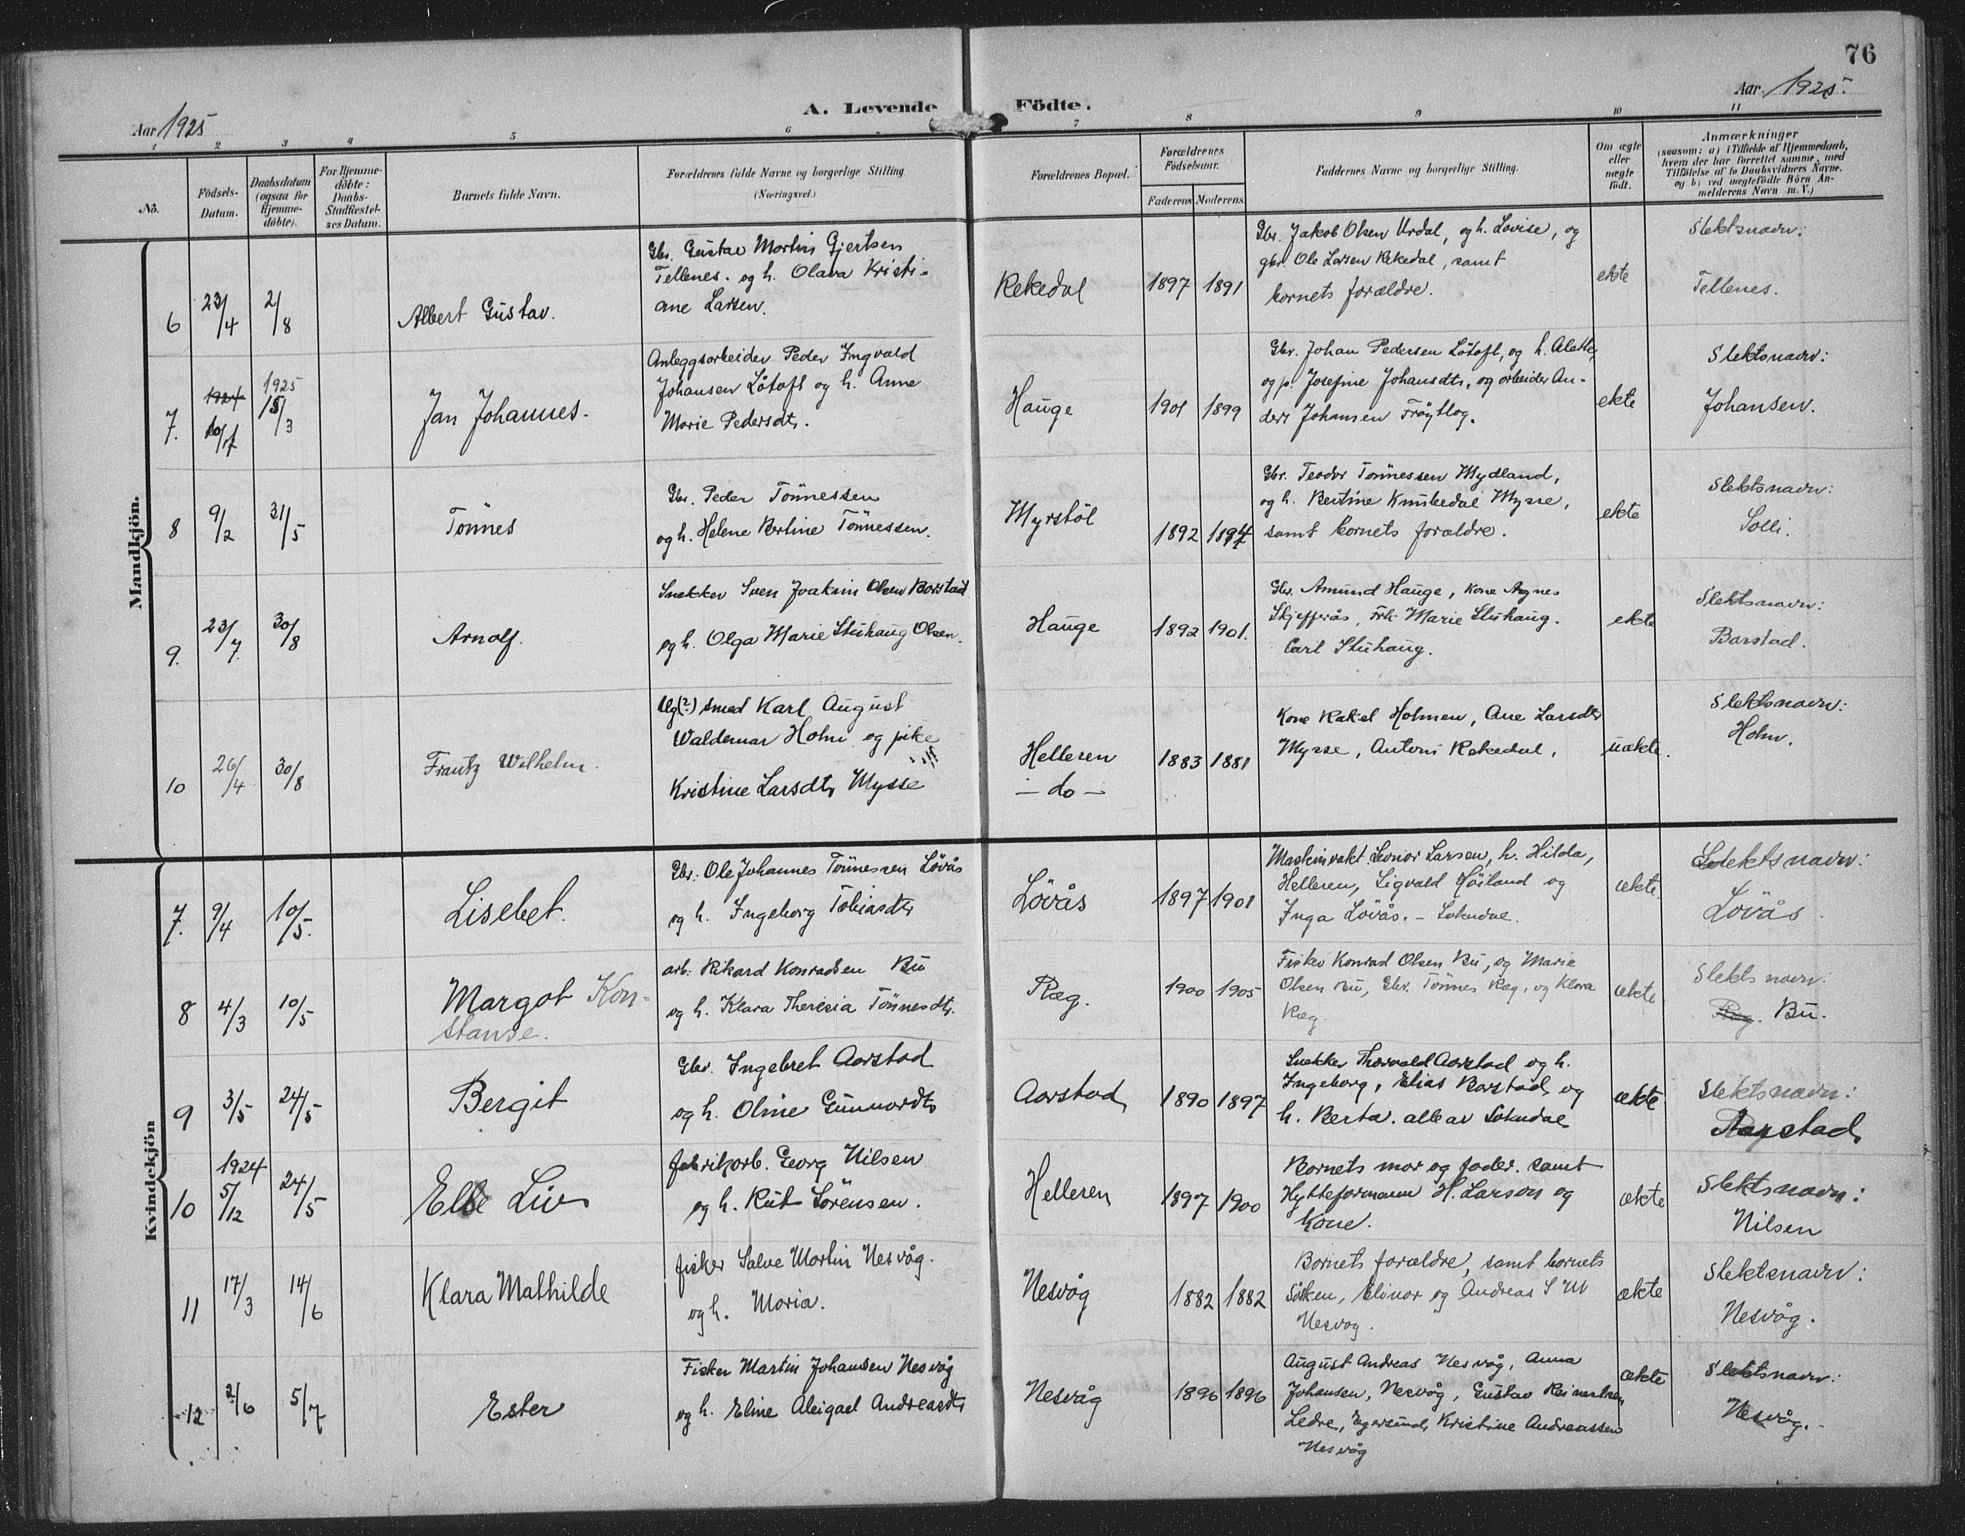 76
A. Levende Födte.
Aar 1925
Aar 1925.
1 2 3 4 5 6 7 8 9 10 11
No.
Födsels-
Datum.
Daabsdatum
(ogsaa for
Hjemme-
döbte).
For Hjemme-
döbte:
Daabs-
Stadfæstel-
ses Datum.
Barnets fulde Navn.
Forældrenes fulde Navne og borgerlige Stilling
(Næringsvei.)
Forældrenes Bopæl.
Forældrenes
Födselsaar.
Faderens Moderens
Faddernes Navne og borgerlige Stilling.
Om ægte
eller
uægte
födt.
Anmærkninger
(saasom: a) i Tilfælde af Hjemmedaab,
hvem der har forrettet samme, med
Tilföielse af to Daabsvidners Navne.
og b) ved uægtefödte Börn An-
melderens Navn m. V.)
Mandkjön.
6 23/4 2/8 Albert Gustav.
Gbr. Gustav Martin Gjertsen
Tellenes. og h. Olava Kristi-
ane Larsen.
Rekedal 1897 1891
Gbr. Jakob Olsen Urdal, og h. Lovise, og
gbr. Ole Larsen Rekedal, samt
barnets forældre.
ekte
Slektsnavn:
Tellenes.
7. 1924 1925 15/3 Jan Johannes.
Anleggsarbeider Peder Ingvald
Johansen Låtoft og h. Anne
Marie Pedersdtr.
Hauge 1901 1899
Gbr. Johan Pedersen Låtoft, og h. Alette,
og p. Josefine Johansdtr, og arbeider An-
ders Johansen Fröytlog.
ekte
Slektsnavn:
Johansen.
8 9/2 31/5 Tönnes
Gbr. Peder Tönnessen
og h. Helene Bertine Tönnessen.
Myrstöl 1892 1894
Gbr. Teodor Tönnessen Mydland,
og h. Bertine Knubedal Mysse,
samt barnets forældre.
ekte
Slektsnavn:
Solli.
9. 23/7. 30/8 Arnolf.
Snekker Sven Joakim Olsen Barstad
og h. Olga Marie Stuhaug Olsen.
Hauge 1892 1901.
Gbr. Amund Hauge, Kone Agnes
Skjefferås, Frk. Marie Stuhaug.
Carl Stuhaug.
ekte
Slektsnavn:
Barstad.
10 26/4 30/8 Frantz Wilhelm.
Ug(?) smed Karl August
Waldemar Holm og pike
Kristine Larsdtr Mysse
Helleren
– do –
1883 1881
Kone Rakel Holmen, Ane Larsdtr
Mysse, Antoni Rekedal.
uekte.
Slektsnavn:
Holm.
Kvindekjön
7. 9/4 10/5. Lisebet.
Gbr. Ole Johannes Tönnessen Lövås
og h. Ingeborg Tobiasdtr
Lövås 1897 1901
Maskinvakt Leonor Larsen, h. Hilda,
Helleren, Sigvald Höiland og
Inga Lövås. – Sokndal.
ekte.
Slektsnavn:
Lövås.
8 4/3 10/5 Margot Kon-
stanse.
arb. Rikard Konradsen Bu
og h. Klara Theresia Tönnesdtr.
Ræg. 1900 1905
Fisker Konrad Olsen Bu, og Marie
Olsen Bu, Gbr. Tönnes Ræg, og Klara
Ræg.
ækte.
Slektsnavn:
Ræg. Bu.
9 3/5 24/5 Bergit
Gbr. Ingebret Aarstad
og h. Oline Gunnardtr
Aarstad 1890 1897
Snekker Thorvald Aarstad og h.
Ingeborg, Elias Barstad, og
h. Berta. alle av Sokndal
ækte
Slektsnavn:
Aarstad.
10 1924 5/12 24/5 Else Liv
fabrikarb. Georg Nilsen
og h. Rut Sörensen.
Helleren 1897 1900
Barnets mor og fader. samt
Hytteformann H. Larson og
Kone.
ækte
Slektsnavn:
Nilsen
11 17/3 14/6 Klara Mathilde
fisker Salve Martin Nesvåg.
og h. Maria.
Nesvåg 1882 1882
Barnets forældre, samt barnets
Söskn, Elinor og Andreas S M
Nesvåg.
ækte
Slektsnavn:
Nesvåg.
12 2/6 5/7 Ester
Fisker Martin Johansen Nesvåg
og h. Eline Abigael Andreasdtr
Nesvåg 1896 1896
August Andreas Nesvåg, Anna
Johansen, Nesvåg, Gustav Reinertsen,
Ledre, Egersund, Kristine Andreassen
Nesvåg
ækte
Slektsnavn:
Nesvåg.